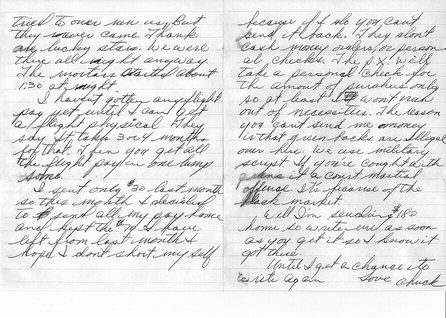 tried to over run us, But
they never came. Thank
my lucky stars. We were
there all night anyway.
The mortars started about
1:30 at night.
I haven't gotten any flight
pay yet until I can get
a flight physical. They
say it takes 3 or 4 months
for that. Then you get all
the flight pay in one lump
some.
I sent only $30 last month
so this month I decided
to send all my pay home
and kept the $70 I have
left from last month I
hope I don't short my self
because if I do you can't
send it back. They don't
cash money orders, or person
al checks. The P.X. will
take a personal check for
the amount of purchase only
so at least I won't rush
out of necessities. The reason
you can't send me money
is that green backs are illegal
over here. We use military
script If you're caught with
greens it a court martial
offense. It's because of the
black market
Well I'm sending $180
home so write me as soon
as you get it so I know it
got there.
Until I get a chance to
write again Love Chuck